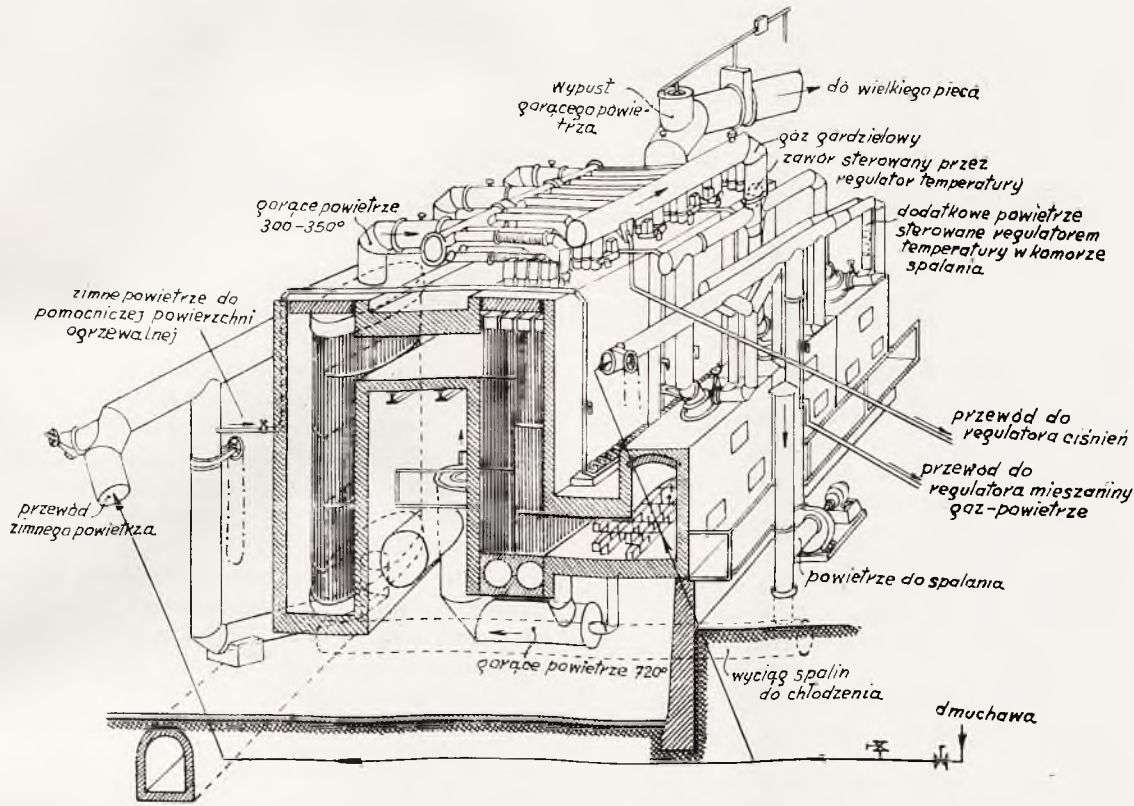 wypust
gorącego powie-
trza
do wielkiego pieca
gaz gardzielowy
zawór sterowany przez
regulator temperatury
gorące powietrze
300-350°
dodatkowe powietrze
sterowane regulatorem
temperatury w komorze
spalania
zimne powietrze do
pomocniczej powierzchni
ogrzewalnej
przewód do
regulatora ciśnień
przewód do
regulatora mieszaniny
gaz-powietrze
przewód
zimnego powietrza
powietrze do spalania
gorące powietrze 720°
wyciąg spalin
do chłodzenia
dmuchawa